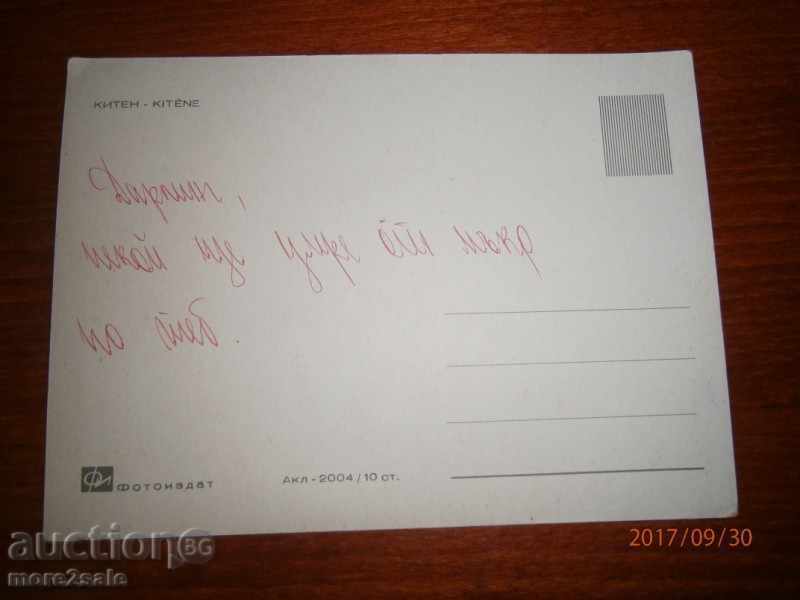 КИТЕН - KITÈNE
Дарлинг,
някой ще умре от мъка
по теб.
Фотоиздат
Акл - 2004 / 10 ст.
2017/09/30
auctionBG
more2sale